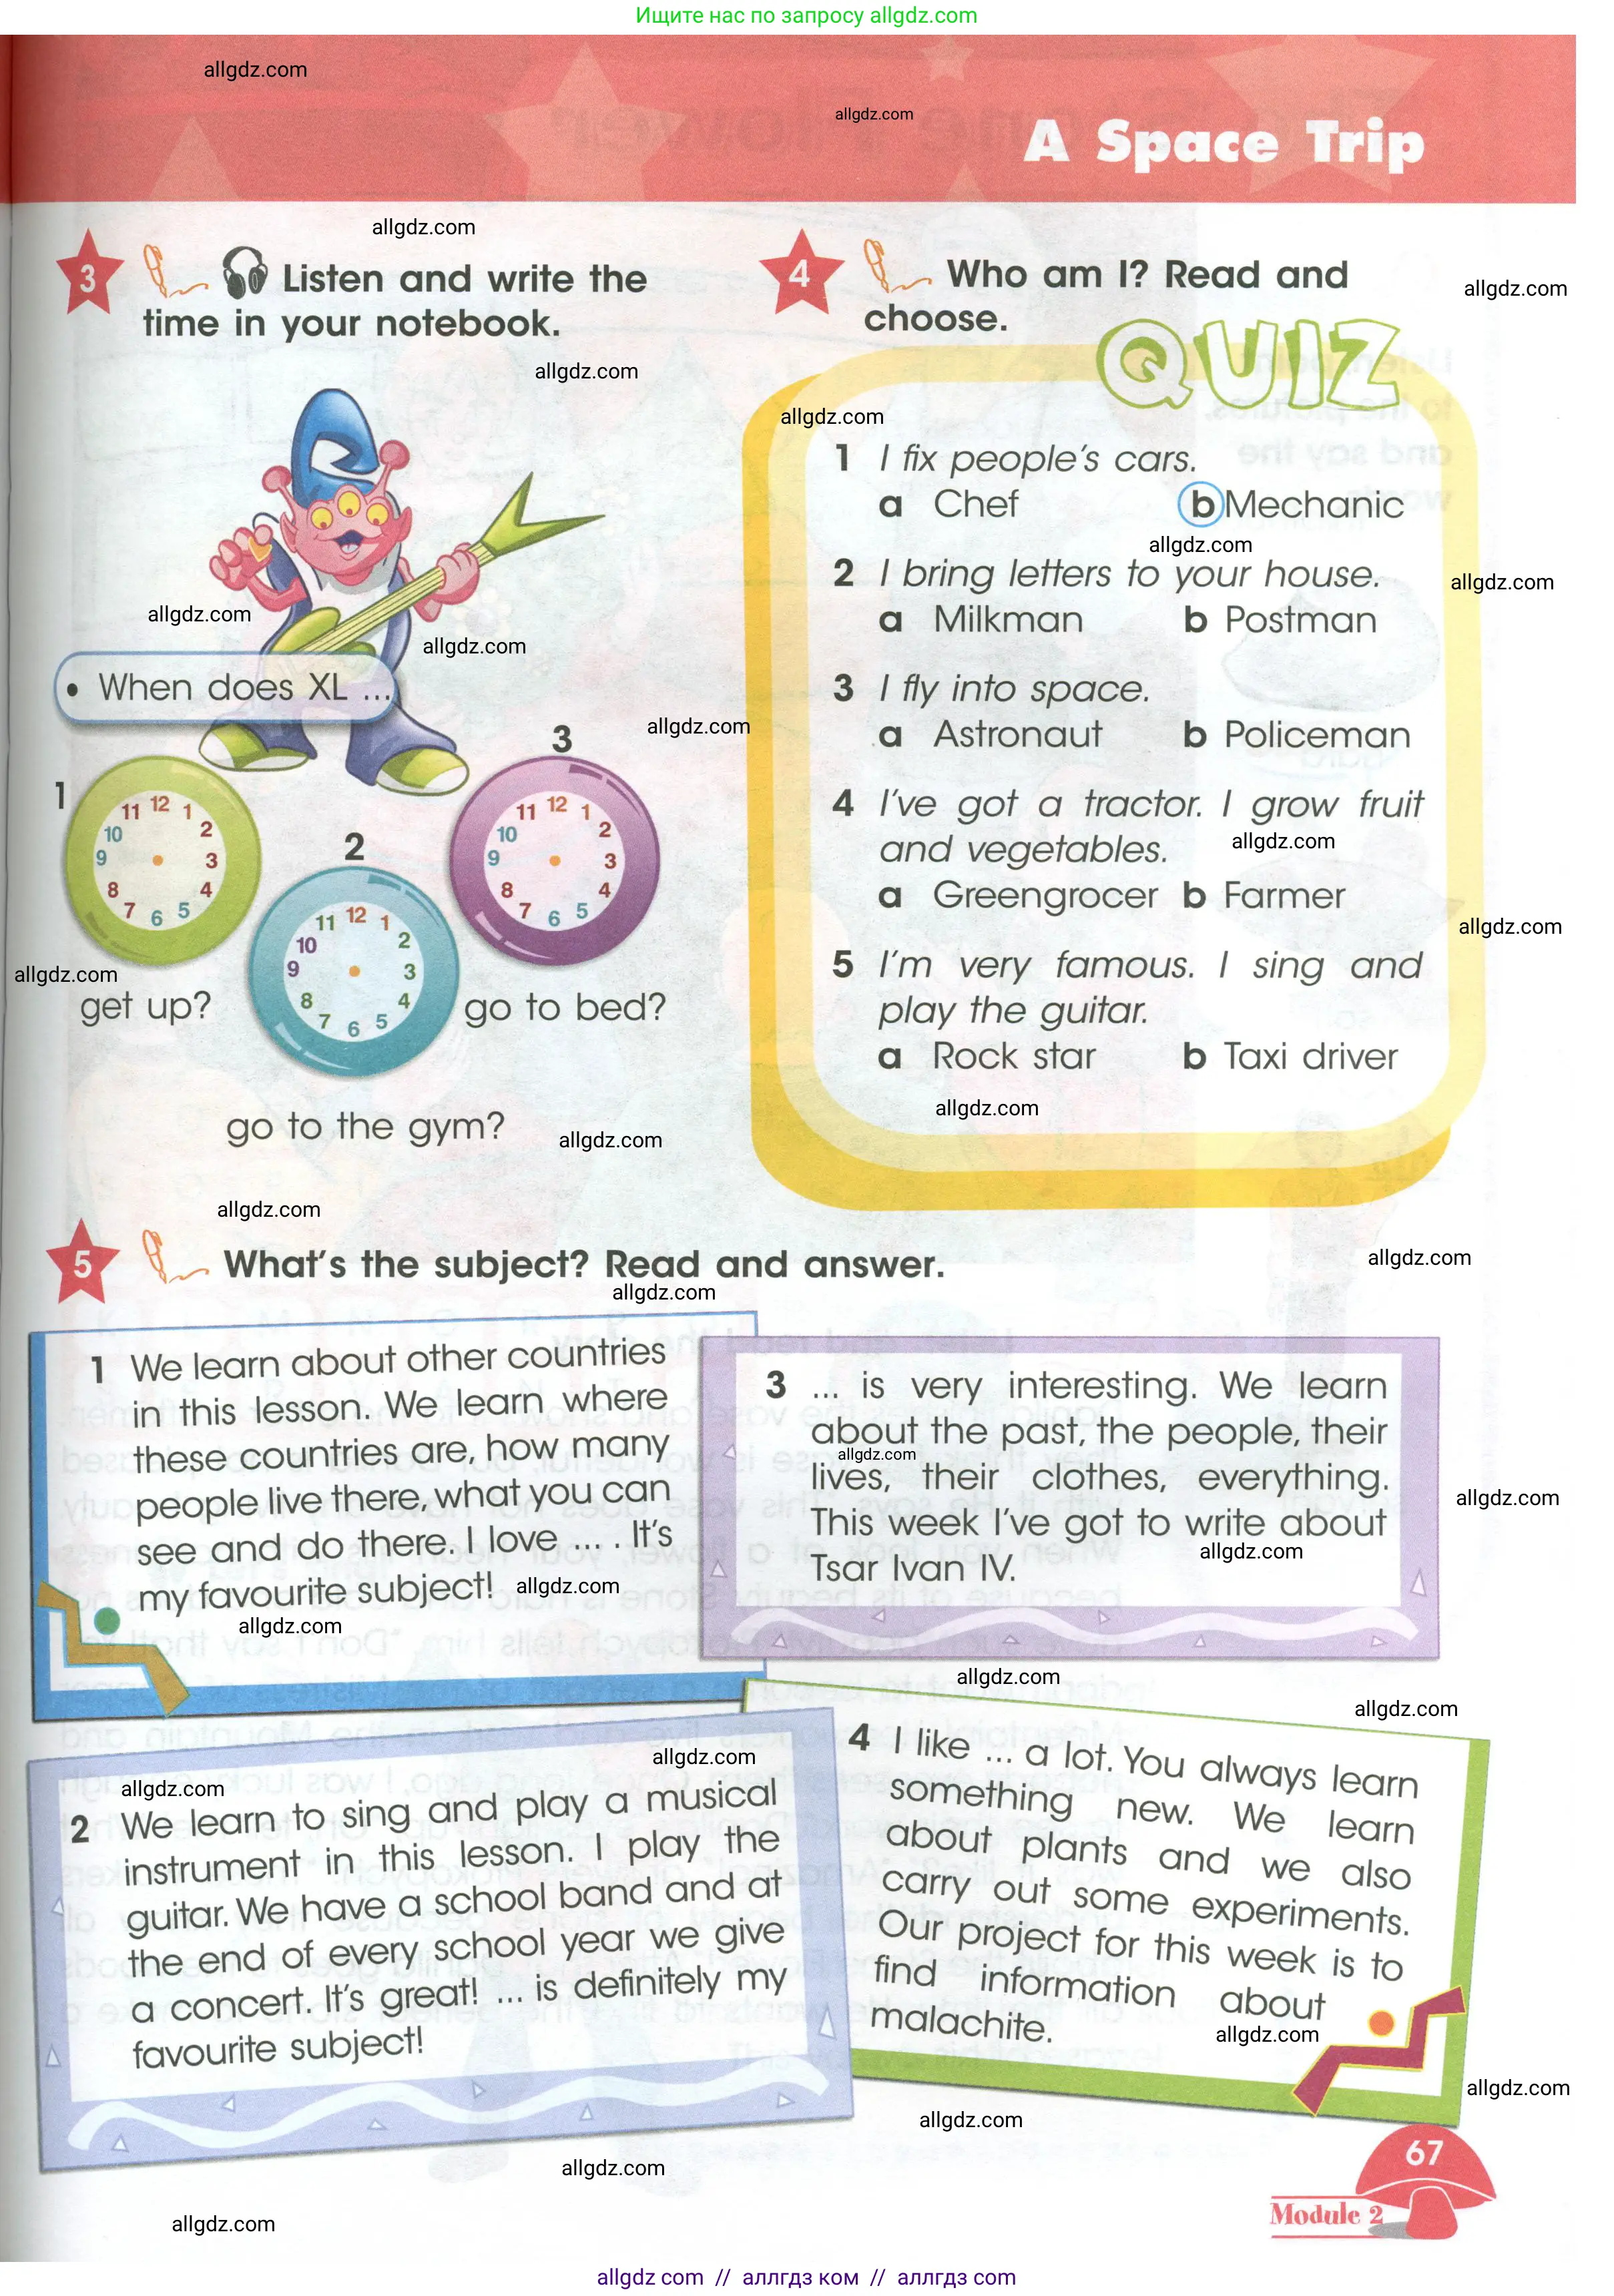 Ищите нас по запросу allgdz.com
allgdz.com
allgdz.com
A Space Trip
allgdz.com
3 Listen and write the
time in your notebook.
allgdz.com
allgdz.com
• When does XL ...
allgdz.com
allgdz.com
allgdz.com
1
11 12 1
10 2
9 3
8 4
7 6 5
get up?
allgdz.com
2
11 12 1
10 2
9 3
8 4
7 6 5
go to the gym?
allgdz.com
3
11 12 1
10 2
9 3
8 4
7 6 5
go to bed?
4 Who am I? Read and
choose.
allgdz.com
QUIZ
allgdz.com
1 I fix people's cars.
a Chef b Mechanic
allgdz.com
2 I bring letters to your house.
allgdz.com
a Milkman b Postman
3 I fly into space.
a Astronaut b Policeman
4 I've got a tractor. I grow fruit
and vegetables.
allgdz.com
a Greengrocer b Farmer
allgdz.com
5 I'm very famous. I sing and
play the guitar.
a Rock star b Taxi driver
allgdz.com
allgdz.com
5 What's the subject? Read and answer.
allgdz.com
allgdz.com
1 We learn about other countries
in this lesson. We learn where
these countries are, how many
people live there, what you can
see and do there. I love ... . It's
my favourite subject!
allgdz.com
allgdz.com
3 ... is very interesting. We learn
about the past, the people, their
allgdz.com
lives, their clothes, everything.
allgdz.com
This week I've got to write about
allgdz.com
Tsar Ivan IV.
allgdz.com
allgdz.com
allgdz.com
allgdz.com
2 We learn to sing and play a musical
instrument in this lesson. I play the
guitar. We have a school band and at
the end of every school year we give
a concert. It's great! ... is definitely my
favourite subject!
4 I like ... a lot. You always learn
something new. We learn
about plants and we also
carry out some experiments.
Our project for this week is to
find information about
malachite.
allgdz.com
allgdz.com
allgdz.com
67
Module 2
allgdz.com
allgdz.com
allgdz com // аллгдз ком // аллгдз com